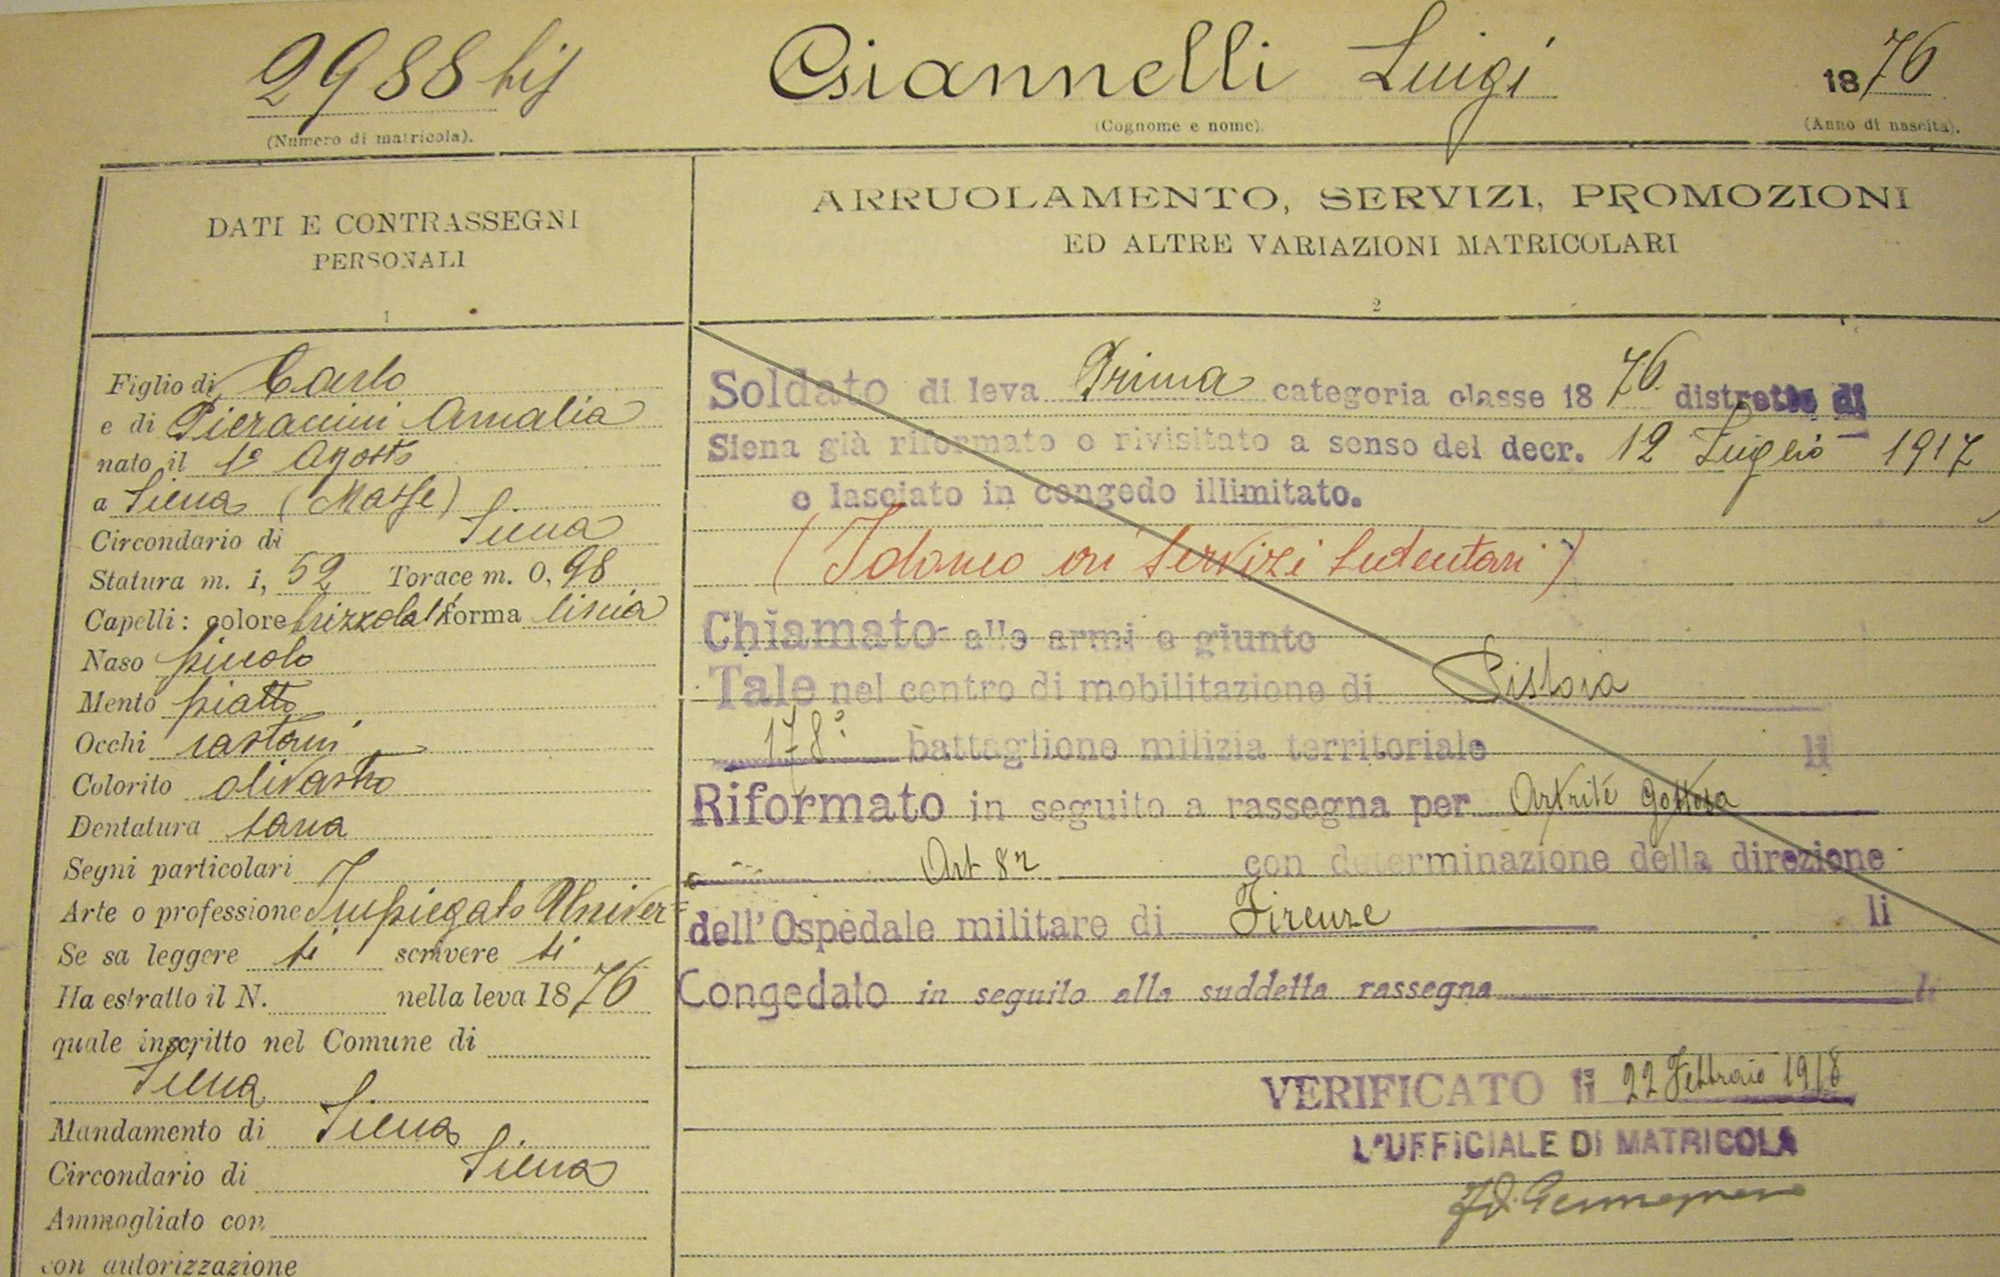 2988 bis Giannelli Luigi 1876
(Numero di matricola). (Cognome e nome). (Anno di nascita).
DATI E CONTRASSEGNI
PERSONALI
1
Figlio di Carlo
e di Pieranini Amalia
nato il 1° Agosto
a Siena (Masse)
Circondario di Siena
Statura m. 1, 52 Torace m. 0, 98
Capelli: colore brizzolati forma liscia
Naso piccolo
Mento piatto
Occhi castani
Colorito olivastro
Dentatura sana
Segni particolari
Arte o professione Impiegato Univer=
Se sa leggere si scrivere si
Ha estratto il N. nella leva 1876
quale inscritto nel Comune di
Siena
Mandamento di Siena
Circondario di Siena
Ammogliato con
con autorizzazione
ARRUOLAMENTO, SERVIZI, PROMOZIONI
ED ALTRE VARIAZIONI MATRICOLARI
2
Soldato di leva Prima categoria classe 1876 distretto di
Siena già riformato e rivisitato a senso del decr. 12 Luglio 1917
e lasciato in congedo illimitato.
(Idoneo ai servizi sedentari)
Chiamato alle armi e giunto
Tale nel centro di mobilitazione di Pistoia
178° battaglione milizia territoriale li
Riformato in seguito a rassegna per Artrite gottosa
Art 82 con determinazione della direzione
dell'Ospedale militare di Firenze li
Congedato in seguito alla suddetta rassegna li
VERIFICATO li 22 Febbraio 1918
L'UFFICIALE DI MATRICOLA